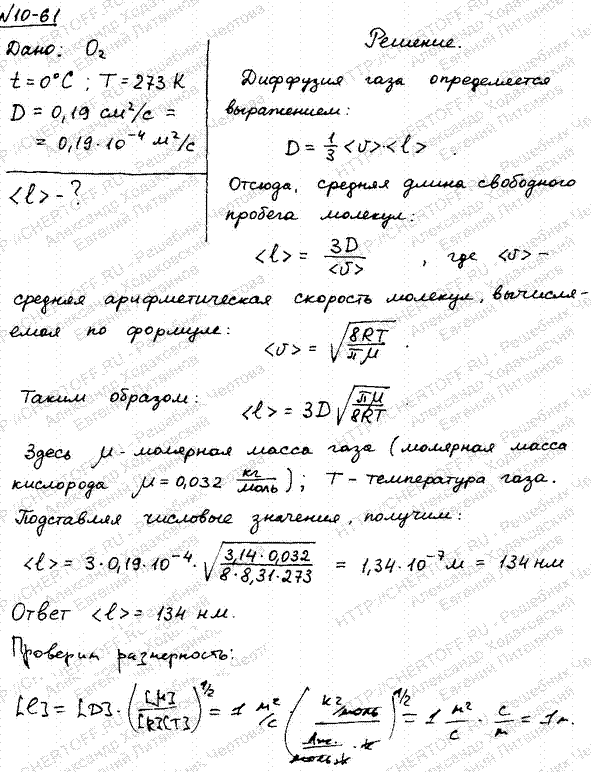 №10-61
Дано: O₂
t = 0°C ; T = 273 К
D = 0,19 см²/с =
= 0,19·10⁻⁴ м²/с
<l> - ?
Решение.
Диффузия газа определяется
выражением:
D = 1/3 <v><l> .
Отсюда, средняя длина свободного
пробега молекул:
<l> = 3D/<v> , где <v> –
средняя арифметическая скорость молекул, вычисля-
емая по формуле:
<v> = √(8RT/πμ) .
Таким образом:
<l> = 3D √(πμ/8RT)
Здесь μ - молярная масса газа (молярная масса
кислорода μ = 0,032 кг/моль) ; T - температура газа.
Подставляя числовые значения, получим:
<l> = 3·0,19·10⁻⁴·√(3,14·0,032/8·8,31·273) = 1,34·10⁻⁷ м = 134 нм
Ответ <l> = 134 нм.
Проверим размерность:
[l] = [D]·([μ]/[R][T])^1/2 = 1 м²/с (кг/моль / Дж/моль·К · К)^1/2 = 1 м²/с · с/м = 1м.
HTTP://CHERTOFF.RU - Решебник Чертова
Александр Ходаковский
Евгений Литвинов